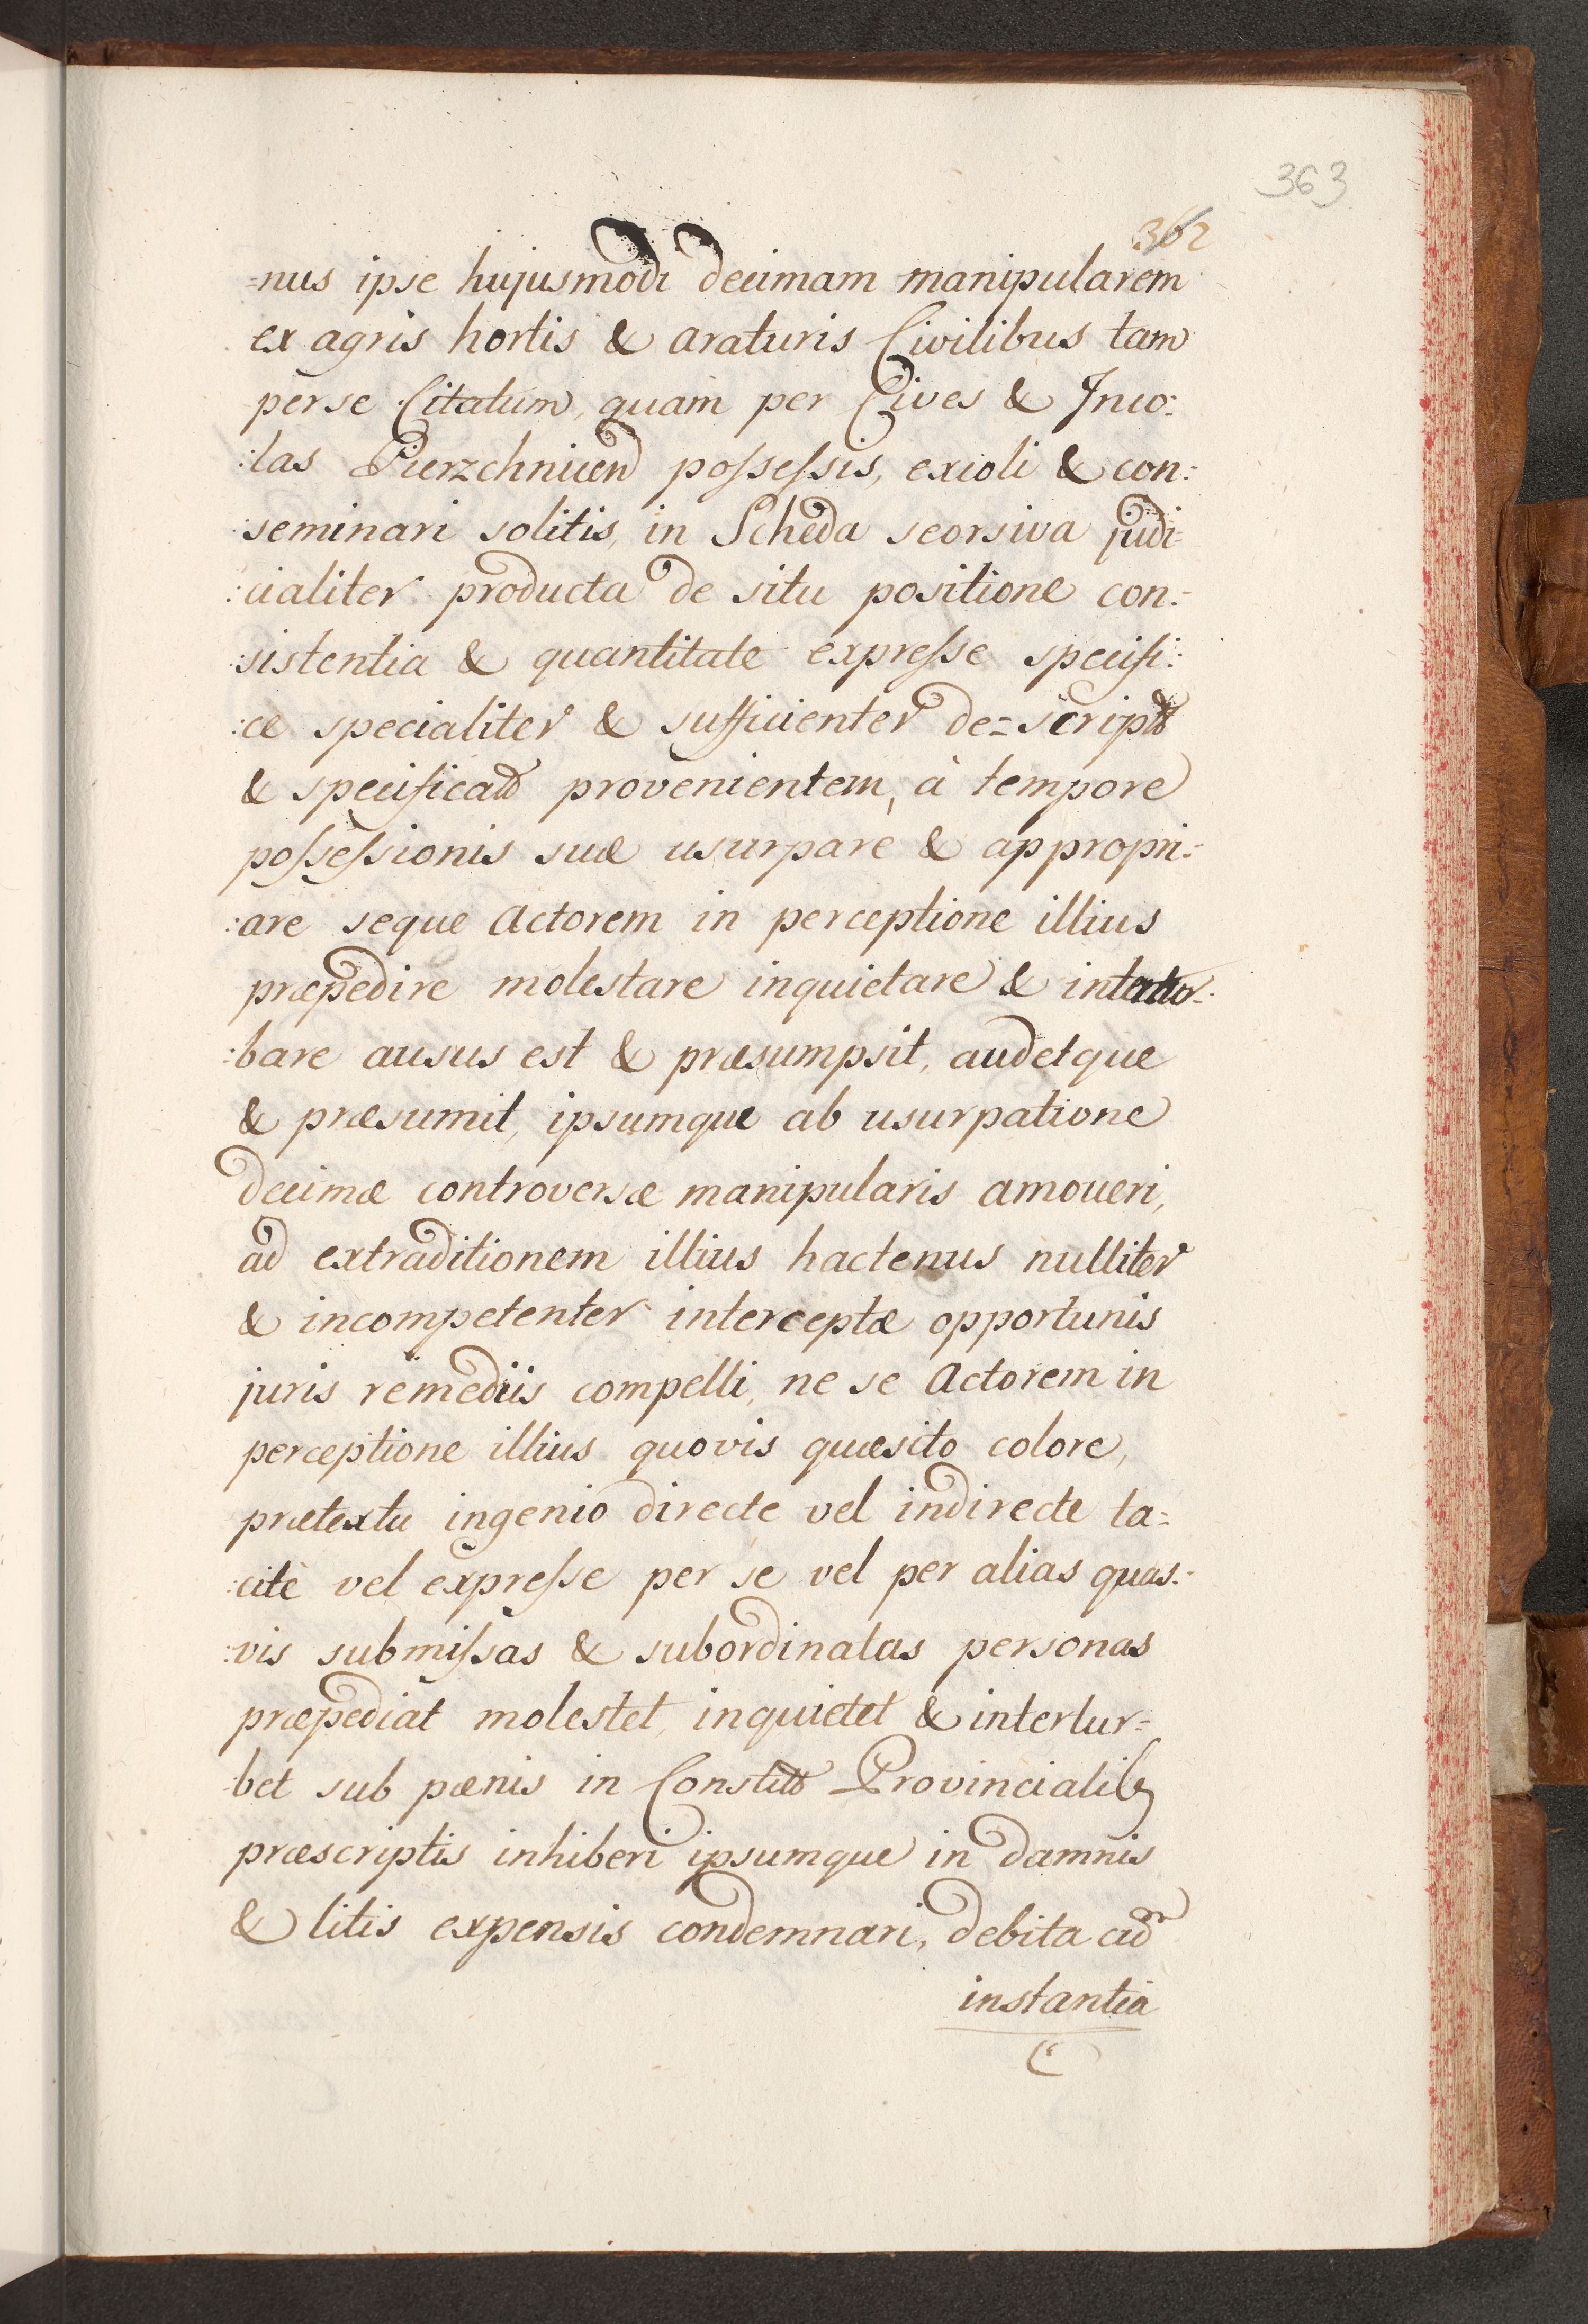 363
362
=nus ipse hujusmodi decimam manipularem
ex agris hortis & araturis Civilibus tam
per se Citatum, quam per Cives & Inco:
:las Pierzchnicen possessis, excoli & con:
:seminari solitis, in Scheda seorsiva judi=
:cialiter producta de situ positione con:=
:sistentia & quantitate expresse specifi:
:ce specialiter & sufficienter de=script
& specificat provenientem, à tempore
possessionis suæ usurpare & appropri:=
:are seque Actorem in perceptione illius
præpedire molestare inquietare &
:bare ausus est & præsumpsit, audetque
& præsumit, ipsumque ab usurpatione
decimæ controversæ manipularis amoveri,
ad extraditionem illius hactenus nulliter
& incompetenter interceptæ opportunis
juris remediis compelli, ne se Actorem in
perceptione illius quovis quæsito colore,
prætextu ingenio directe vel indirecte ta=
:citè vel expresse per se vel per alias quas:=
:vis submissas & subordinatas personas
præpediat molestet, inquietet & intertur=
bet sub pœnis in Constit Provincialib9
præscriptis inhiberi ipsumque in damnis
& litis expensis condemnari, debita ad
instantia